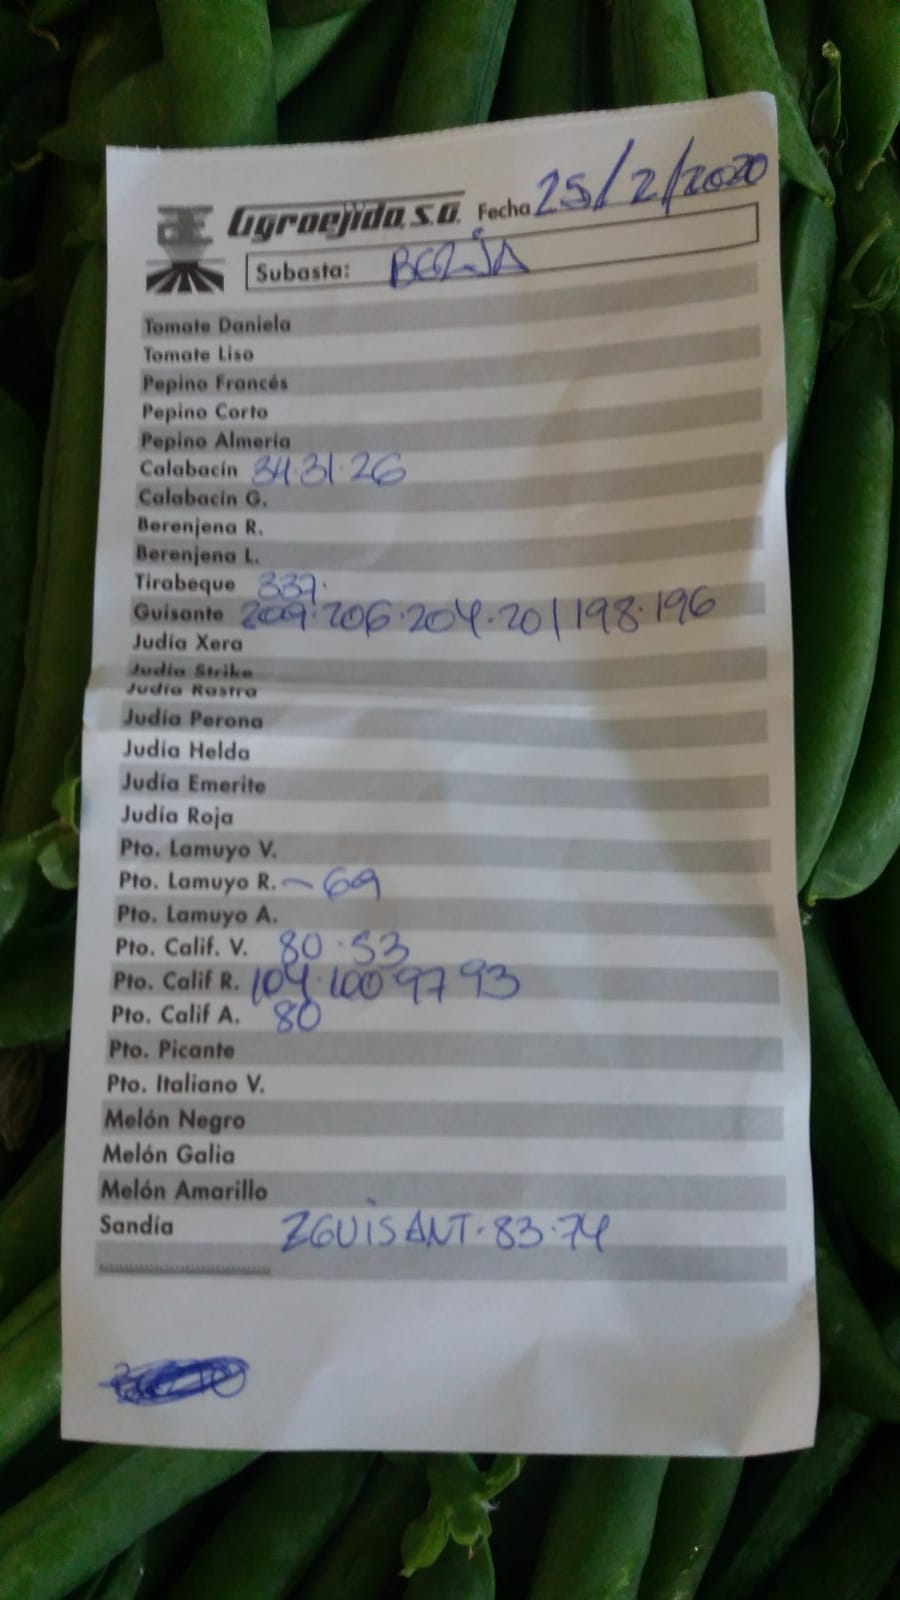 Agroejido, S.A. Fecha 25/2/2020
Subasta: BERJA
Tomate Daniela
Tomate Liso
Pepino Francés
Pepino Corto
Pepino Almería
Calabacín 34·31·26
Calabacín G.
Berenjena R.
Berenjena L.
Tirabeque 337·
Guisante 209·206·204·201 198·196
Judía Xera
Judía Strike
Judía Rastra
Judía Perona
Judía Helda
Judía Emerite
Judía Roja
Pto. Lamuyo V.
Pto. Lamuyo R. – 69
Pto. Lamuyo A.
Pto. Calif. V. 80·53
Pto. Calif R. 104·100 97 93
Pto. Calif A. 80
Pto. Picante
Pto. Italiano V.
Melón Negro
Melón Galia
Melón Amarillo
Sandía 2GUISANT·83·74